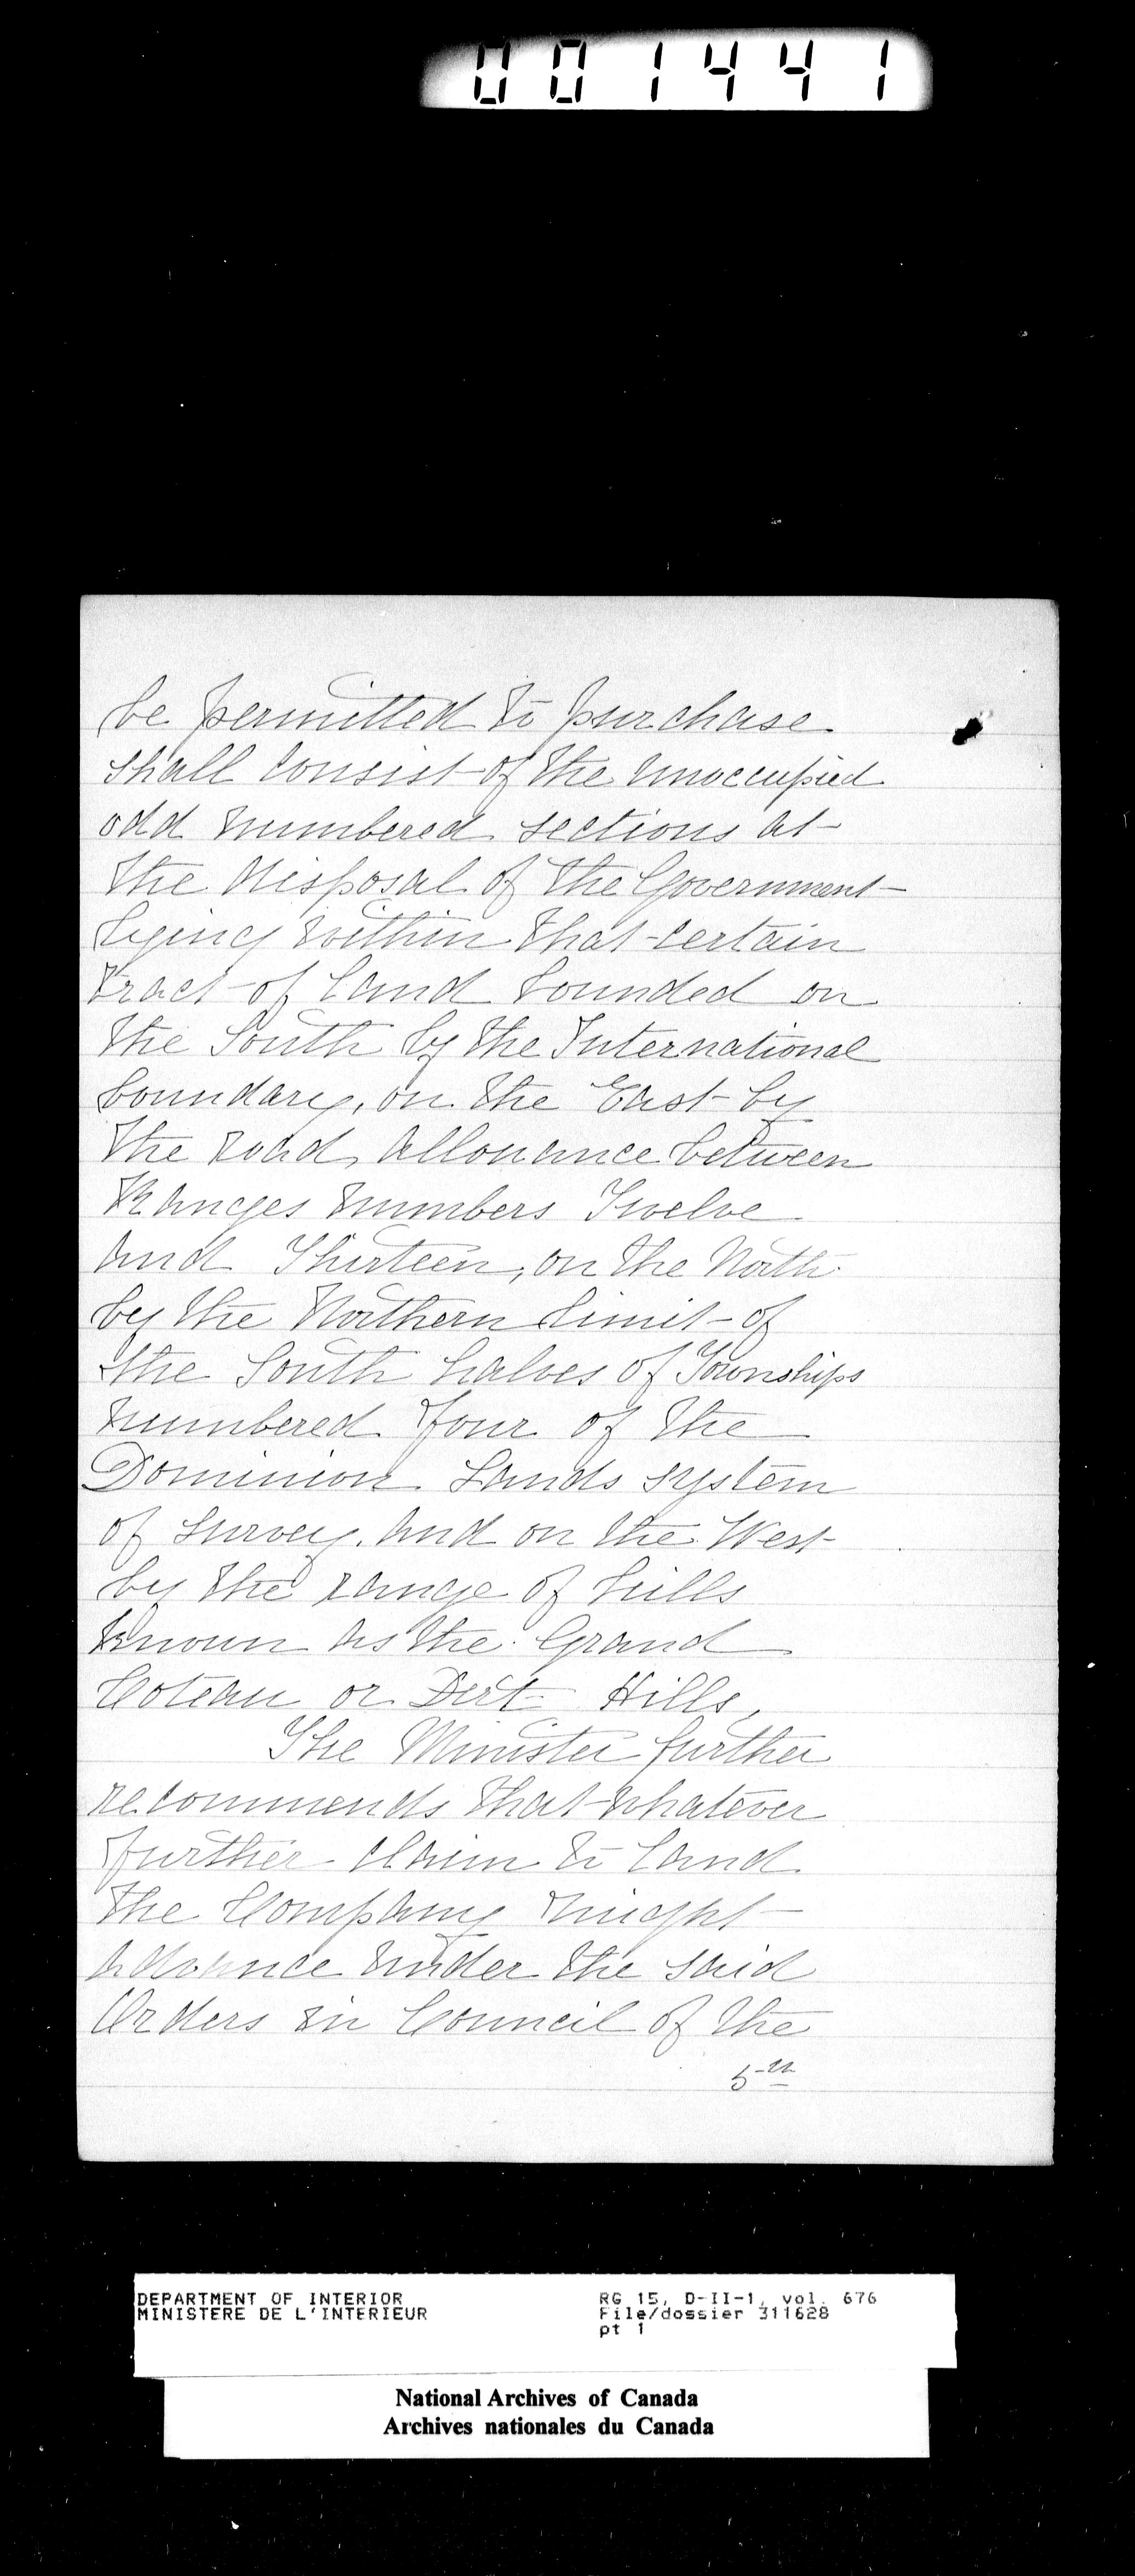 001441
be permitted to purchase
shall consist of the unoccupied
odd numbered sections at
the disposal of the Government
lying within that certain
tract of land bounded on
the South by the International
boundary, on the East by
the road allowance between
Ranges numbers Twelve
and Thirteen, on the North
by the Northern limit of
the South halves of Townships
numbered four of the
Dominion Lands system
of survey, and on the West
by the range of hills
known as the Grand
Coteau or Dirt Hills,
The Minister further
recommends that whatever
further claim to land
the Company might
advance under the said
Orders in Council of the
5th
DEPARTMENT OF INTERIOR
MINISTERE DE L'INTERIEUR
RG 15, D-II-1, vol. 676
File/dossier 311628
pt 1
National Archives of Canada
Archives nationales du Canada